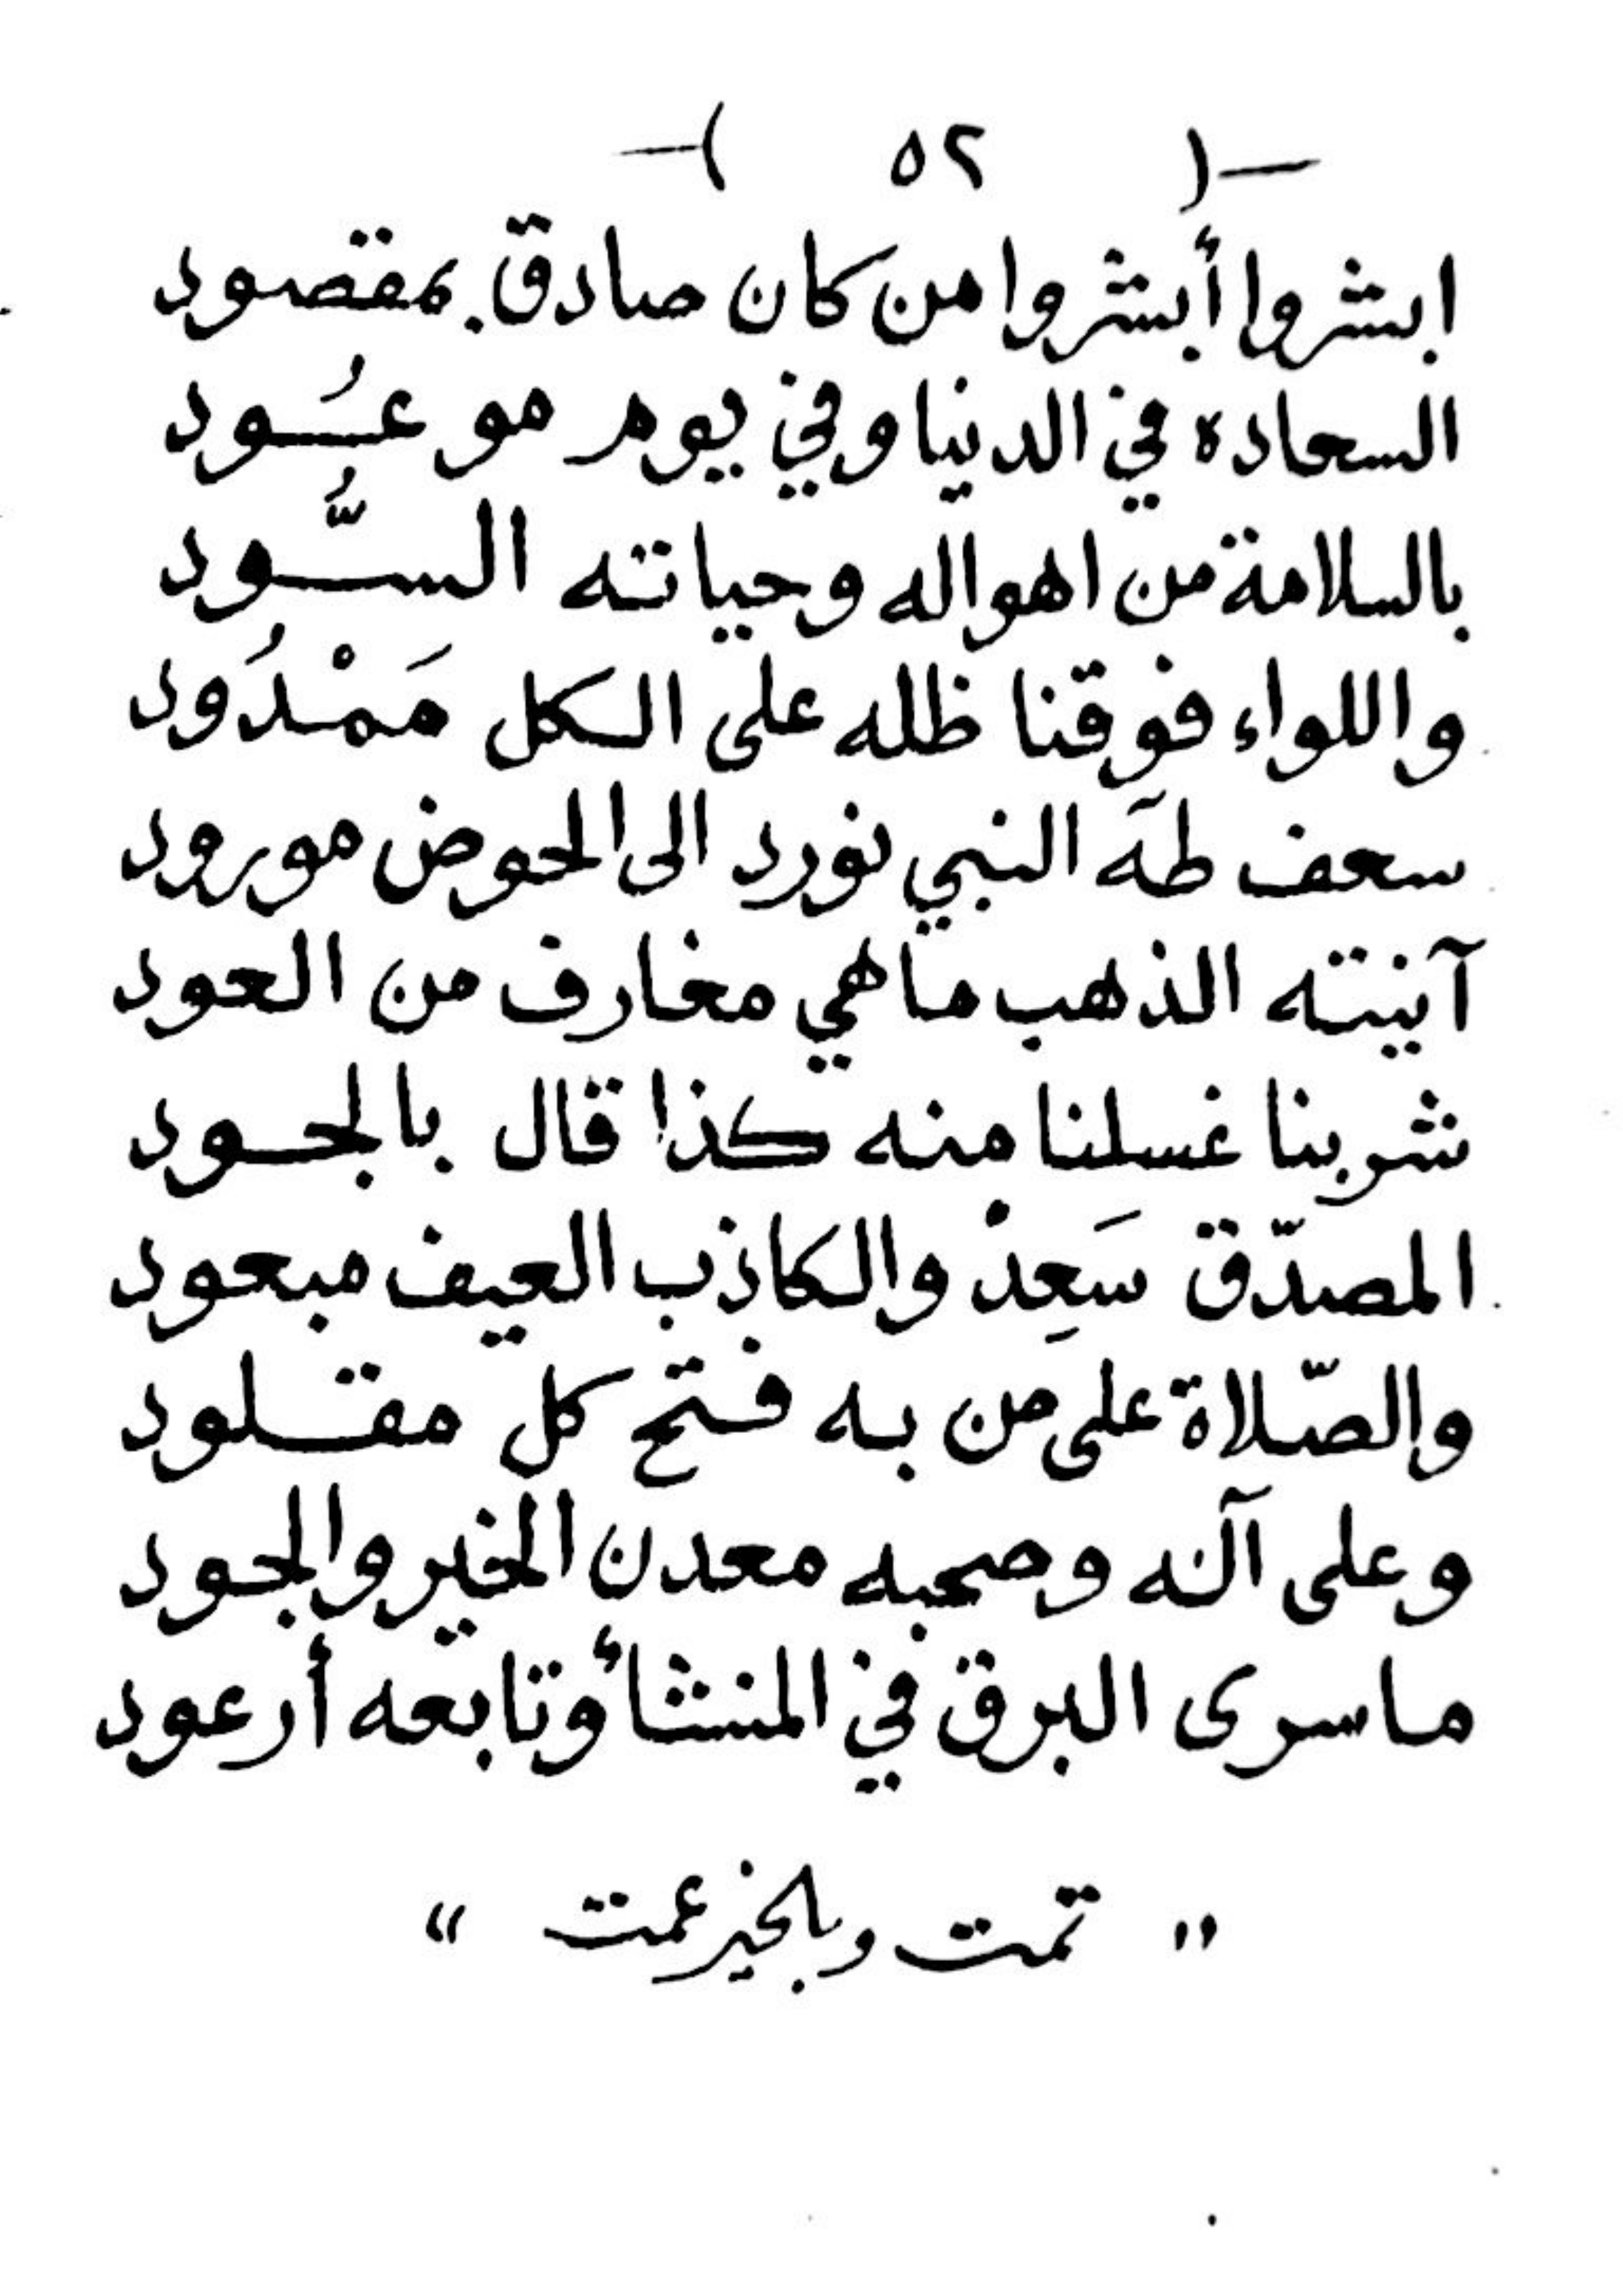 —( ٥٢ )—
ابشروا أبشروا من كان صادق بمقصود
السعاده في الدنيا وفي يوم موعُود
بالسلامة من اهواله وحياته السُّود
واللواء فوقنا ظله على الكل مَمْدُود
سعف طهَ النبي نورد الى الحوض مورود
آنيته الذهب ماهي مغارف من العود
شربنا غسلنا منه كذا قال بالجود
المصدّق سَعِدْ والكاذب العيف مبعود
والصّلاة على من به فتح كل مقلود
وعلى آله وصحبه معدن الخير والجود
ماسرى البرق في المنشأ وتابعه أرعود
" تمت وبلخير عمت "